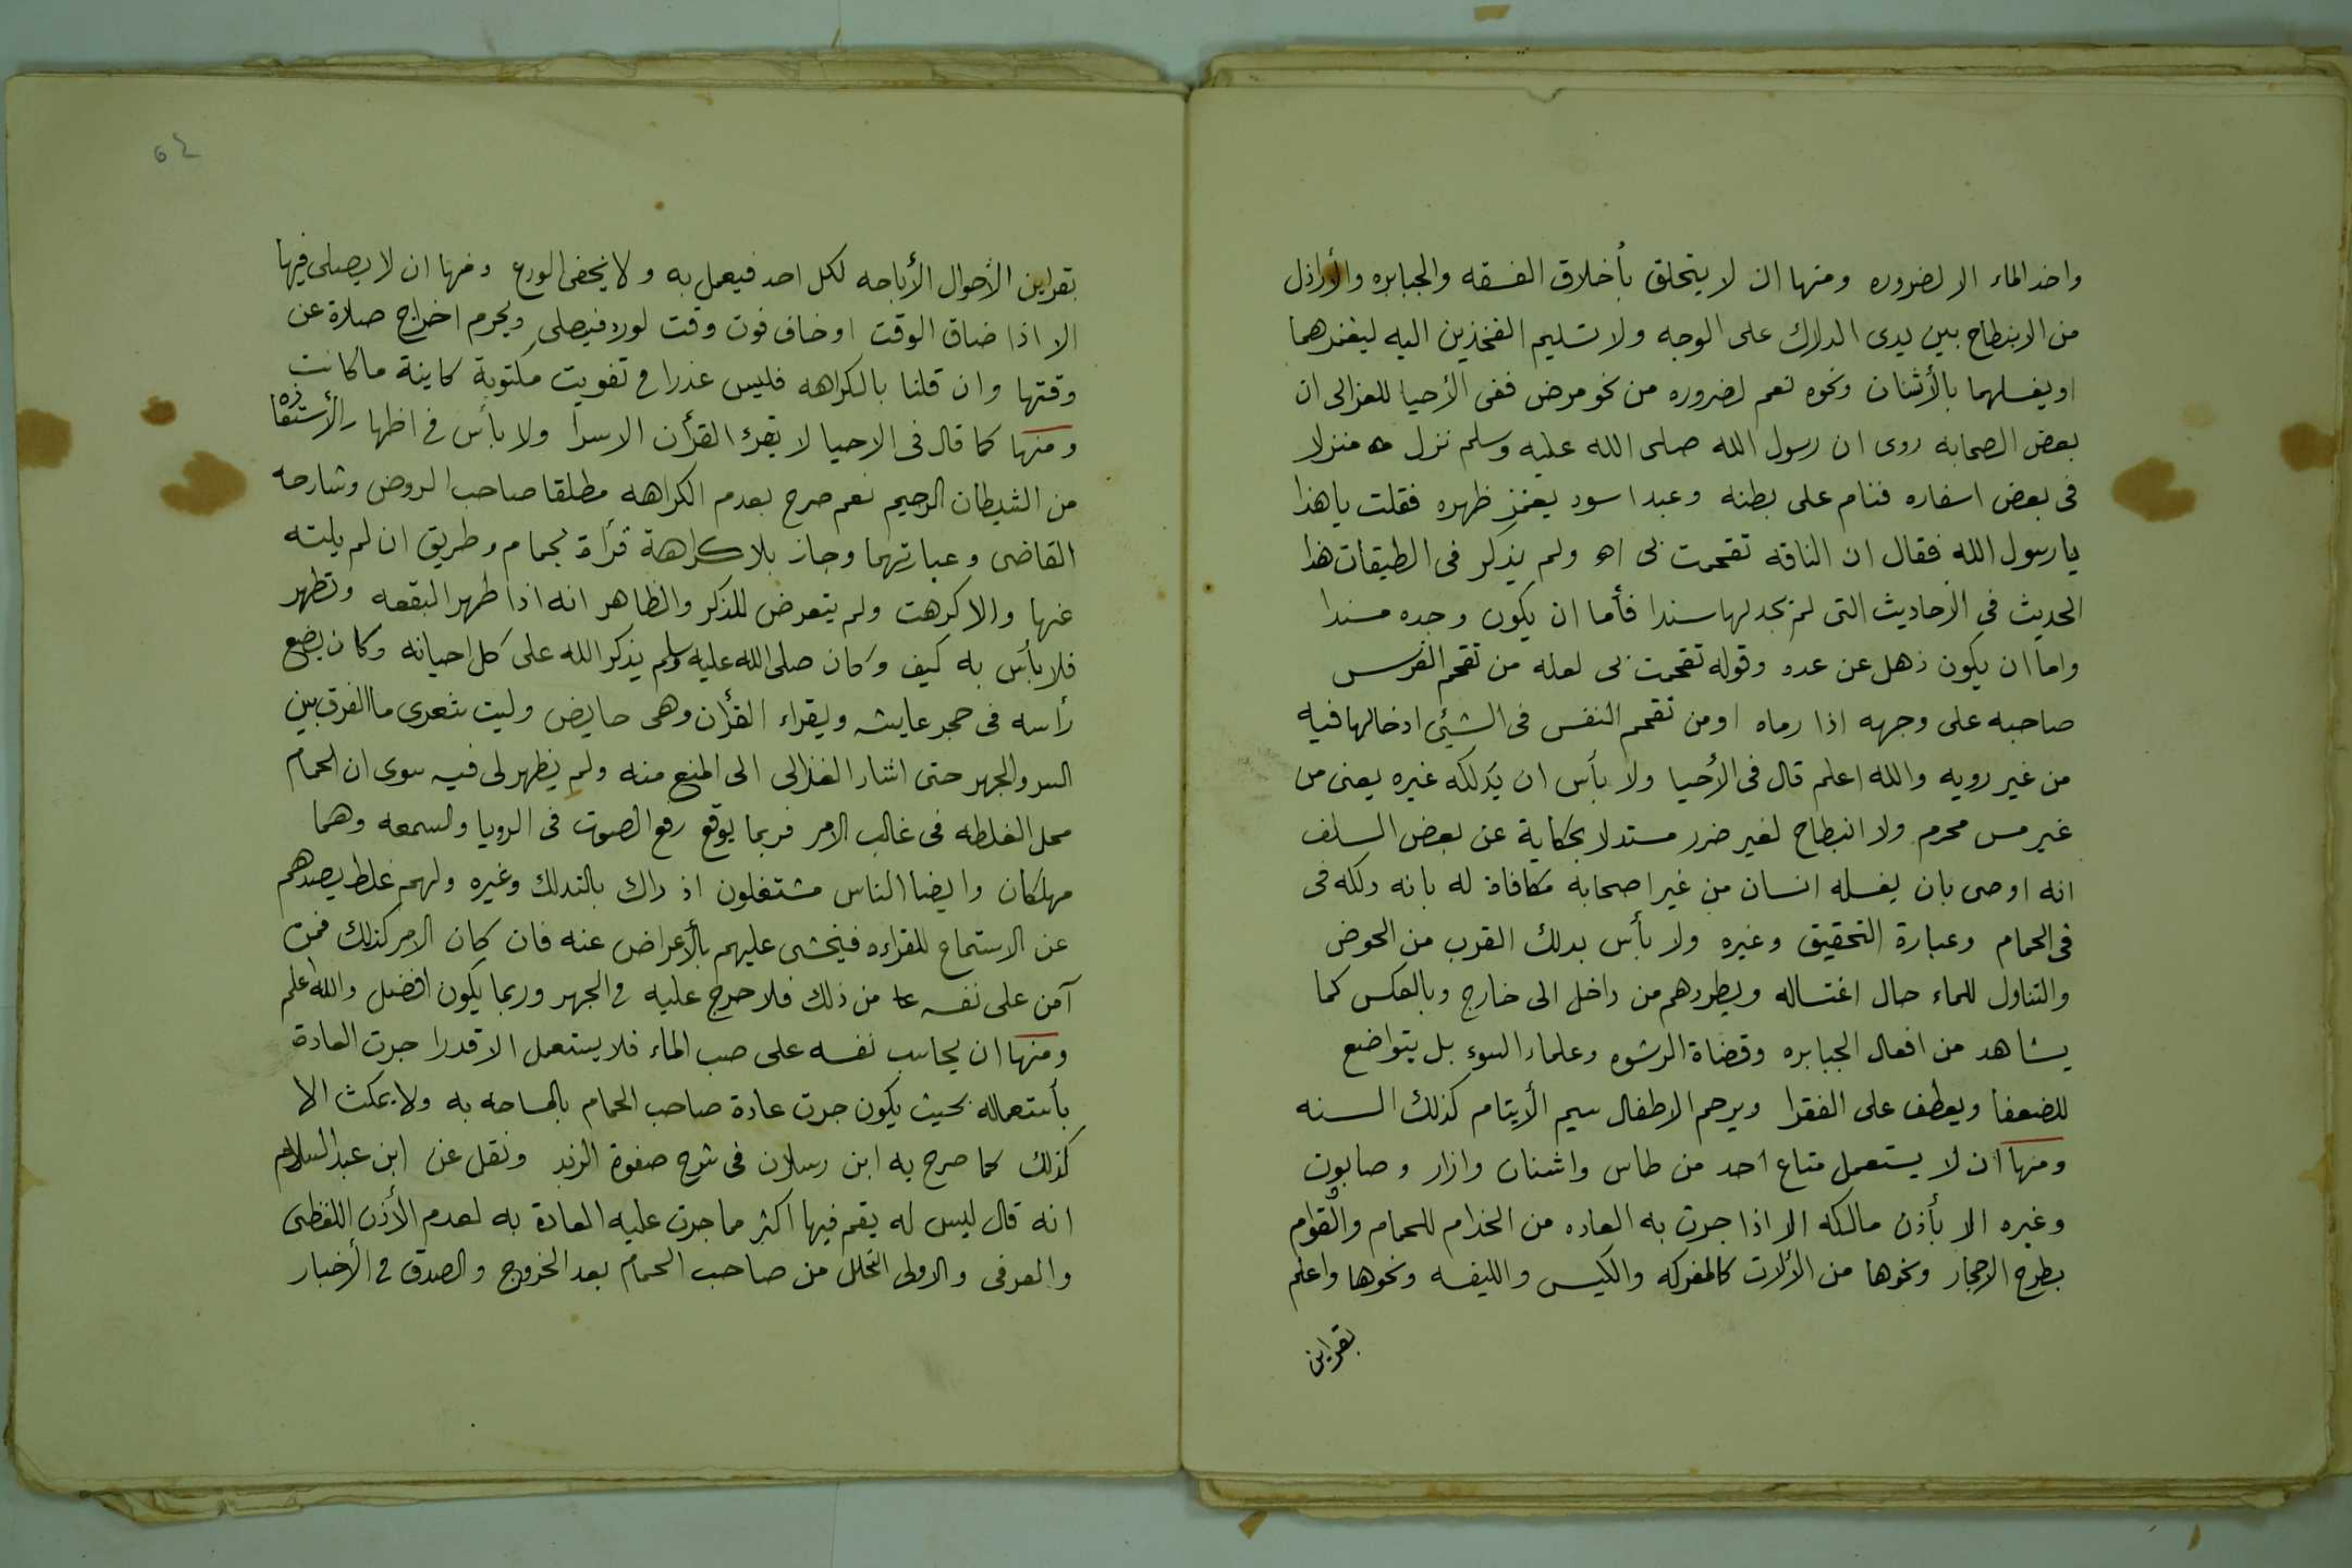 واخذ الماء الا لضروره ومنها ان لا يتخلق بأخلاق الفسقه والجبابره والأراذل
من الانبطاح بين يدى الدلاك على الوجه ولا تسليم الفخذين اليه ليغمزهما
او يغسلهما بالأشنان ونحوه نعم لضروره من نحو مرض ففى الأحيا للغزالى ان
بعض الصحابه روى ان رسول الله صلى الله عليه وسلم نزل منزلا
فى بعض اسفاره فنام على بطنه وعبد اسود يغمز ظهره فقلت يا هذا
يا رسول الله فقال ان الناقه تقحمت بى اه ولم يذكر فى الطبقات هذا
الحديث فى الأحاديث التى لم نجد لها سندا فأما ان يكون وجده مسندا
واما ان يكون ذهل عن عده وقوله تقحمت بى لعله من تقحم الفرس
صاحبه على وجهه اذا رماه اومن تقحم النفس فى الشيئ ادخالها فيه
من غير رويه والله اعلم قال فى الأحيا ولا بأس ان يدلكه غيره يعنى من
غير مس محرم ولا انبطاح لغير ضرر مستدلا بحكاية عن بعض السلف
انه اوصى بان يغسله انسان من غير اصحابه مكافاة له بانه دلكه فى
فى الحمام وعبارة التحقيق وغيره ولا بأس بدلك القرب من الحوض
والتناول للماء حال اغتساله ويطردهم من داخل الى خارج وبالعكس كما
يشاهد من افعال الجبابره وقضاة الرشوه وعلماء السوء بل يتواضع
للضعفا ويعطف على الفقرا ويرحم الاطفال سيم الأيتام كذلك السنه
ومنها ان لا يستعمل متاع احد من طاس واشنان وازار وصابون
وغيره الا بأذن مالكه الا اذا جرت به العاده من الخدام للحمام والقوام
بطرح الاحجار ونحوها من الألات كالمفركه والكيس والليفه ونحوها واعلم
بقراين
بقراين الأحوال الأباحه لكل احد فيعمل به ولا يخفى الورع ومنها ان لا يصلى فيها
الا اذا ضاق الوقت او خاف فوت وقت لورد فيصلى ويحرم اخراج صلاة عن
وقتها وان قلنا بالكراهه فليس عذرا فى تفويت مكتوبة كاينة ما كانت
ومنها كما قال فى الاحيا لا يقرء القرأن الا سرا ولا بأس فى اظهار الأستعاذه
من الشيطان الرجيم نعم صرح بعدم الكراهه مطلقا صاحب الروض وشارحه
القاضى وعبارتهما وجاز بلا كراهة قرأة بحمام وطريق ان لم يلته
عنها والا كرهت ولم يتعرض للذكر والظاهر انه اذا طهر البقعه وتطهر
فلا بأس به كيف وكان صلى الله عليه وسلم يذكر الله على كل احيانه وكان يضع
رأسه فى حجر عايشه ويقراء القرأن وهى حايض وليت شعرى ما الفرق بين
السر والجهر حتى اشار الغزالى الى المنع منه ولم يظهر لى فيه سوى ان الحمام
محل الغلطه فى غالب الامر فربما يوقع رفع الصوت فى الرويا والسمعه وهما
مهلكان وايضا الناس مشتغلون اذ ذاك بالتدلك وغيره ولهم غلط يصدهم
عن الاستماع للقراءه فيخشى عليهم بالأعراض عنه فان كان الامر كذلك فمن
آمن على نفسه من ذلك فلا حرج عليه فى الجهر وربما يكون افضل والله اعلم
ومنها ان يحاسب نفسه على صب الماء فلا يستعمل الا قدرا جرت العادة
بأستعماله بحيث يكون جرت عادة صاحب الحمام بالمسامحه به ولا يمكث الا
كذلك كما صرح به ابن رسلان فى شرح صفوة الزبد ونقل عن ابن عبد السلام
انه قال ليس له يقم فيها اكثر مما جرت عليه العادة به لعدم الأذن اللفظى
والعرفى والاولى التحلل من صاحب الحمام بعد الخروج والصدق فى الأخبار